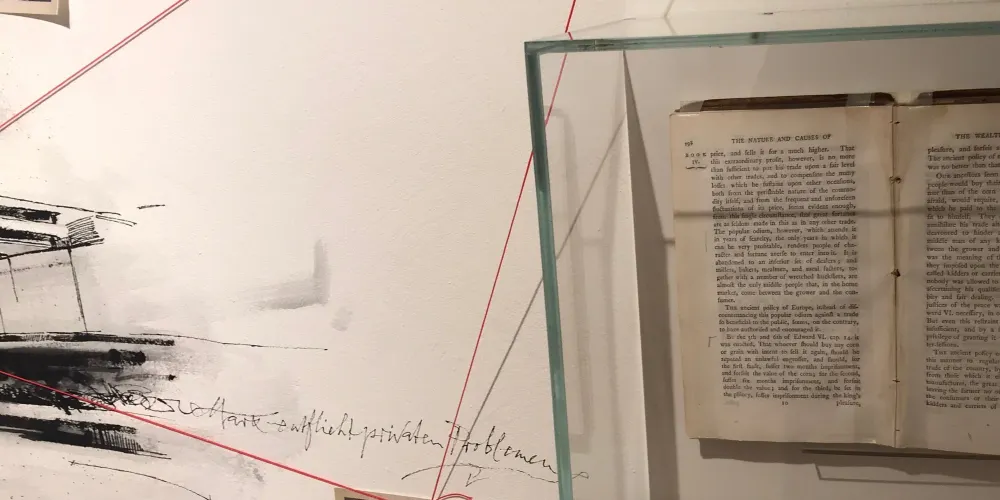 Mark entflieht privaten Problemen
398
THE NATURE AND CAUSES OF
BOOK
IV.
price, and sells it for a much higher. That
this extraordinary profit, however, is no more
than sufficient to put his trade upon a fair level
with other trades, and to compensate the many
losses which he sustains upon other occasions,
both from the perishable nature of the commo-
dity itself, and from the frequent and unforeseen
fluctuations of its price, seems evident enough,
from this single circumstance, that great fortunes
are as seldom made in this as in any other trade.
The popular odium, however, which attends it
in years of scarcity, the only years in which it
can be very profitable, renders people of cha-
racter and fortune averse to enter into it. It is
abandoned to an inferior set of dealers; and
millers, bakers, mealmen, and meal factors, to-
gether with a number of wretched hucksters, are
almost the only middle people that, in the home
market, come between the grower and the con-
sumer.
THE ancient policy of Europe, instead of dis-
countenancing this popular odium against a trade
so beneficial to the public, seems, on the contrary,
to have authorised and encouraged it.
BY the 5th and 6th of Edward VI. cap. 14. it
was enacted, That whoever should buy any corn
or grain with intent to sell it again, should be
reputed an unlawful engrosser, and should, for
the first fault, suffer two months imprisonment,
and forfeit the value of the corn; for the second,
suffer six months imprisonment, and forfeit
double the value; and for the third, be set in
the pillory, suffer imprisonment during the king's
pleasure,
THE WEALT
pleasure, and forfeit a
The ancient policy of
was no better than tha
OUR ancestors seem
people would buy thei
than of the corn
afraid, would require,
which he paid to the
fit to himself. They
annihilate his trade
to hinder
middle man of any k
tween the grower and
was the meaning of th
they imposed upon the
called kidders or carrie
nobody was allowed to
ascertaining his qualifi
bity and fair dealing.
justices of the peace w
ward VI. necessary, in o
But even this restraint
insufficient, and by a
privilege of granting it
ter-sessions.
THE ancient policy
trade of the country, b
from those which it